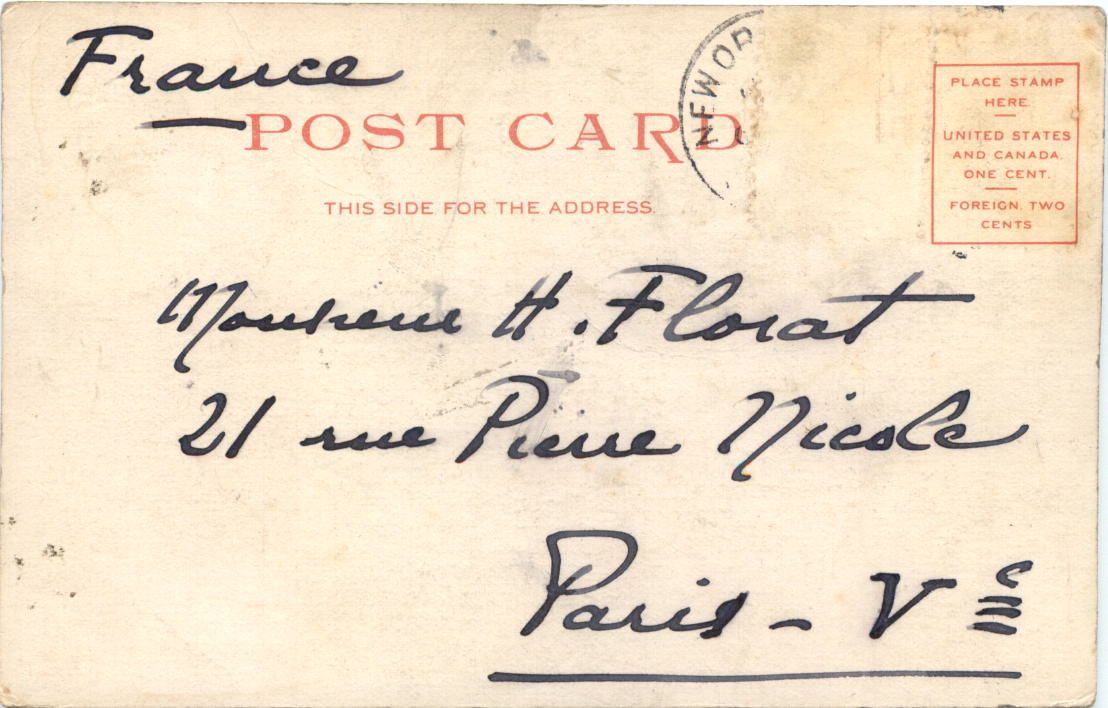 France
POST CARD
THIS SIDE FOR THE ADDRESS.
NEW OR
PLACE STAMP
HERE.
UNITED STATES
AND CANADA.
ONE CENT.
FOREIGN, TWO
CENTS
Monsieur H. Florat
21 rue Pierre Nicole
Paris - Ve